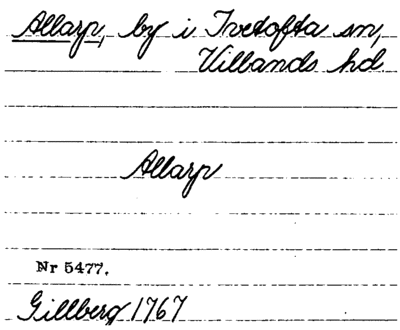 Allarp, by i Ivetofta sn,
Villands hd.
Allarp
Nr 5477.
Gillberg 1767